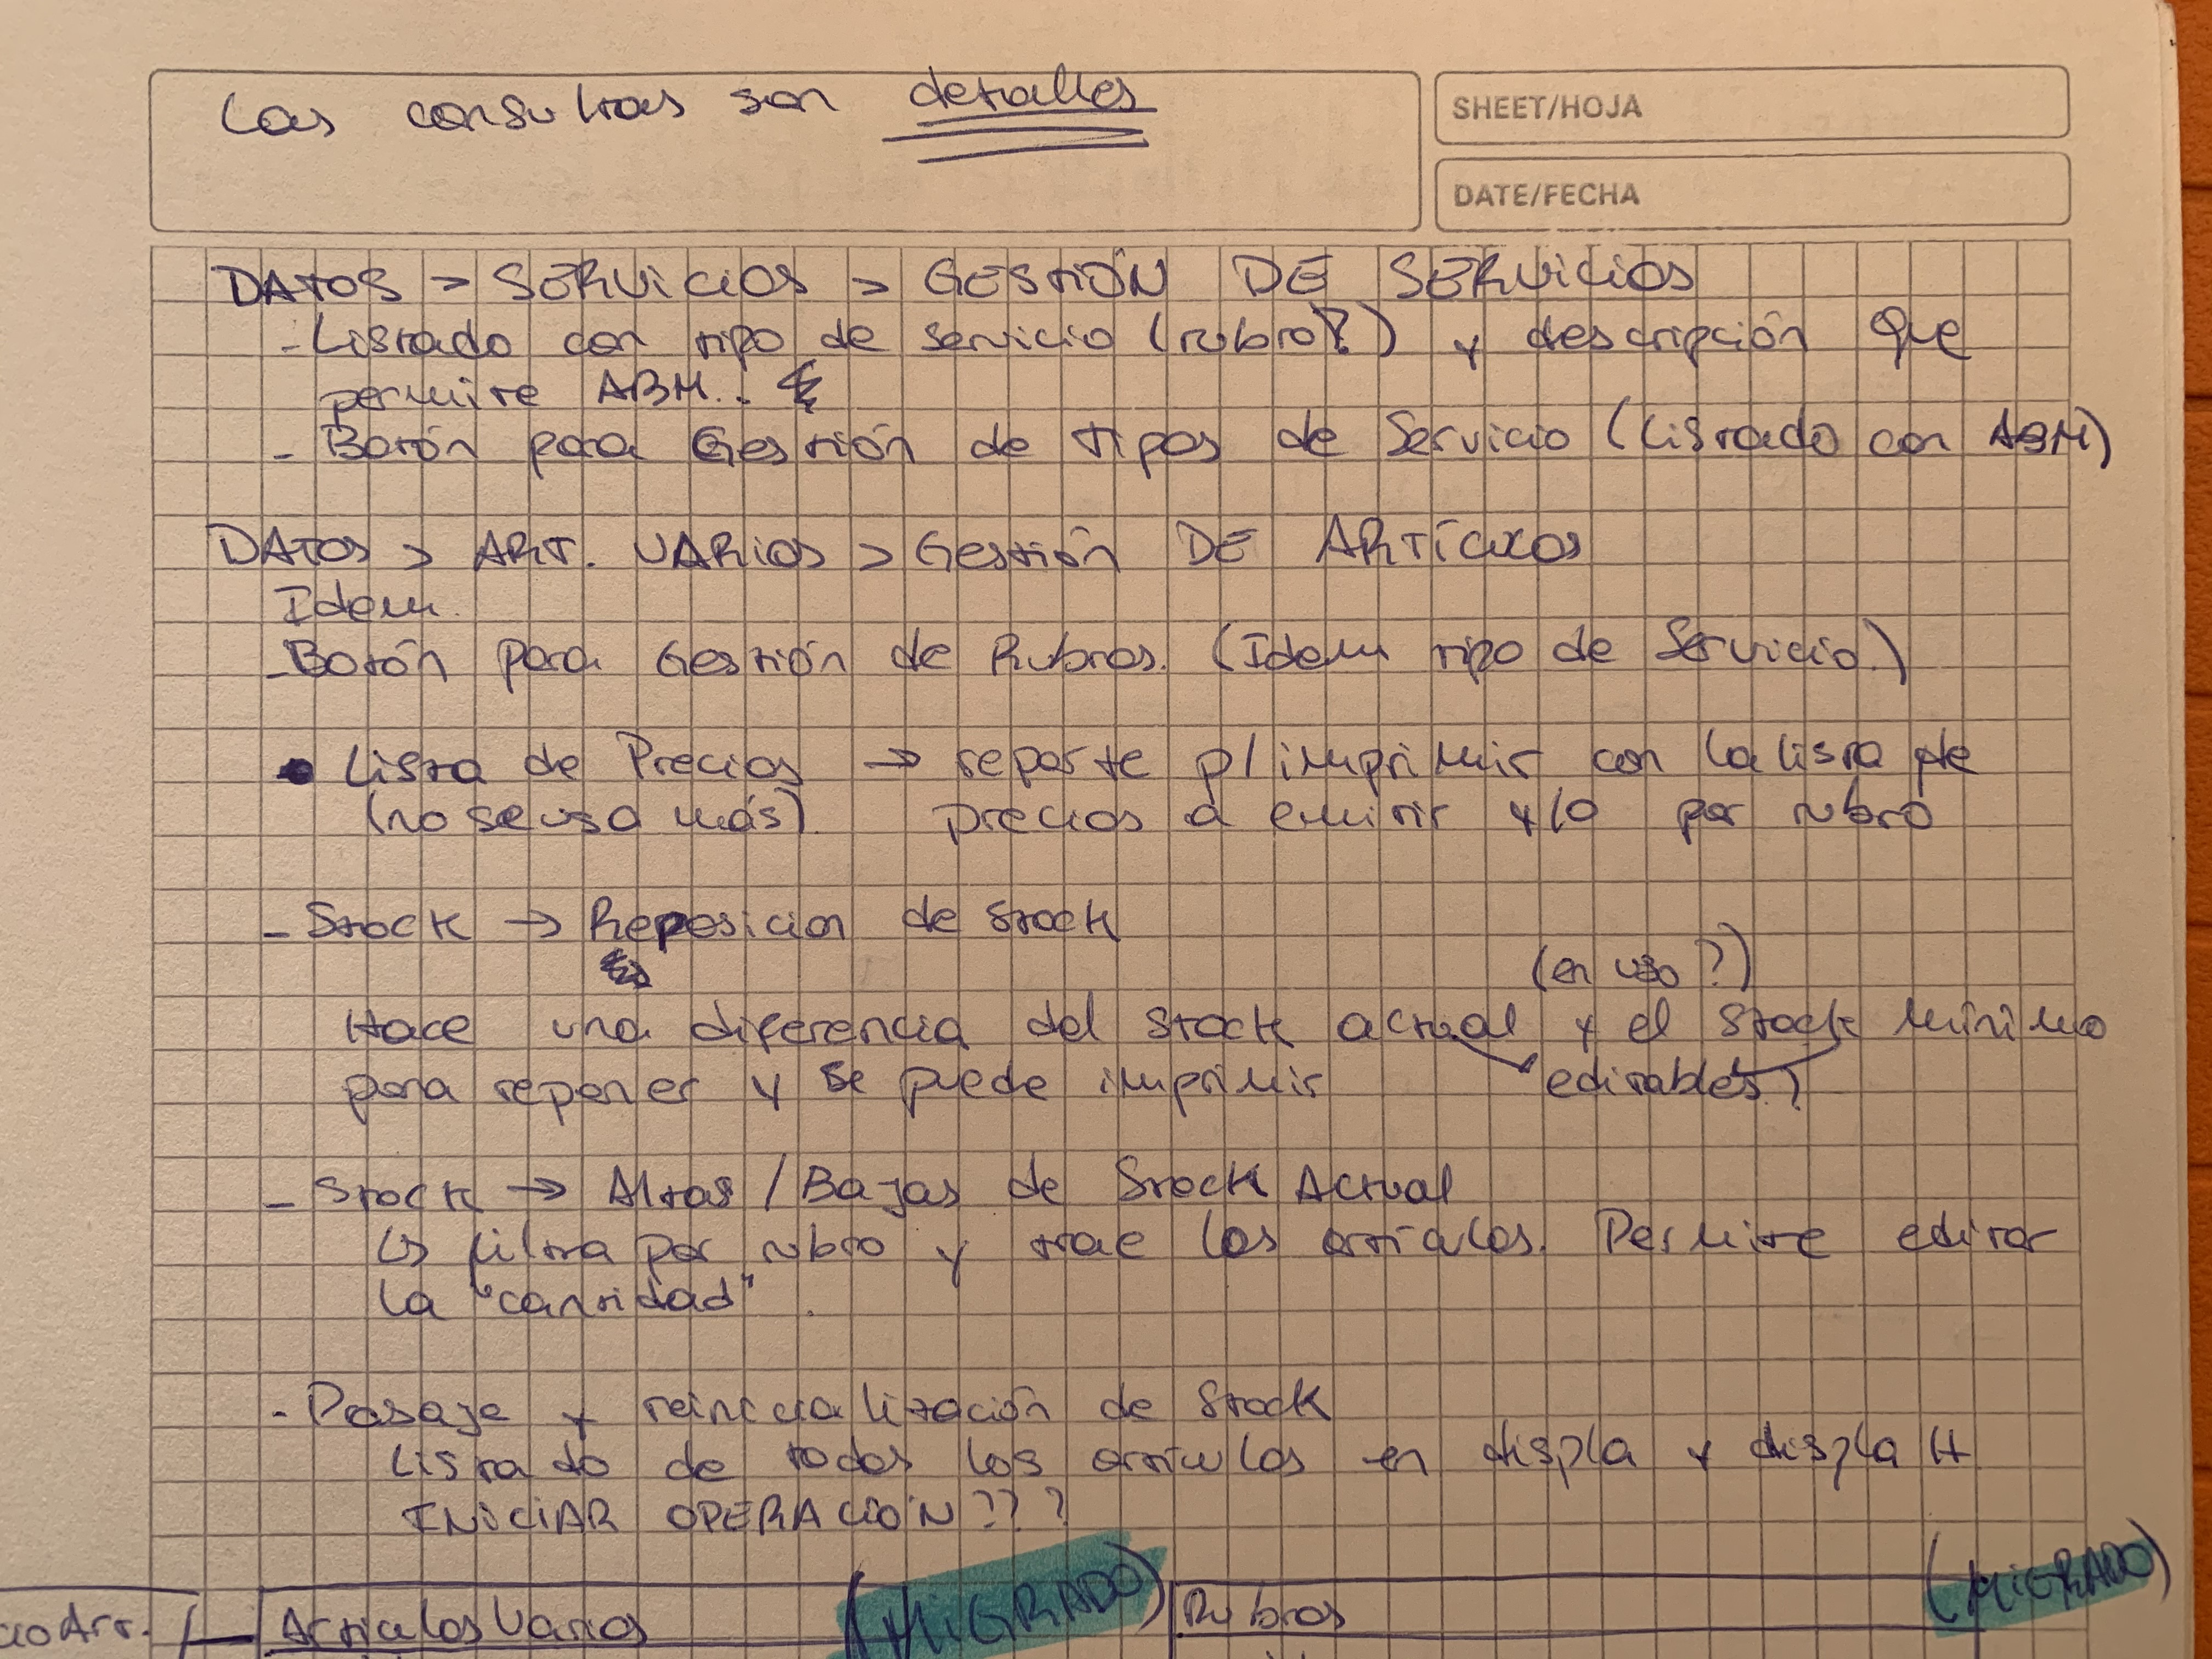 Las consultas son detalles
SHEET/HOJA
DATE/FECHA
DATOS > SERVICIOS > GESTIÓN DE SERVICIOS
- Listado con tipo de servicio (rubro?) y descripción que
permite ABM.
- Botón para Gestión de tipos de Servicio (Listado con ABM)
DATOS > ART. VARIOS > Gestión DE ARTÍCULOS
Idem.
- Botón para Gestión de Rubros. (Idem tipo de Servicio.)
• Lista de Precios → reporte p/imprimir con la lista de
(no se usa más) precios a emitir y/o por rubro
- Stock → Reposicion de Stock
(en uso?)
Hace una diferencia del stock actual y el stock mínimo
para reponer y se puede imprimir editables?
- Stock → Altas / Bajas de Stock Actual
↳ filtra por rubro y trae los artículos. Permite editar
la "cantidad".
- Pasaje y reinicialización de Stock
Listado de todos los artículos en displa y displa H
INICIAR OPERACIÓN???
Art. Artículos Varios (MIGRADO) Rubros (MIGRADO)